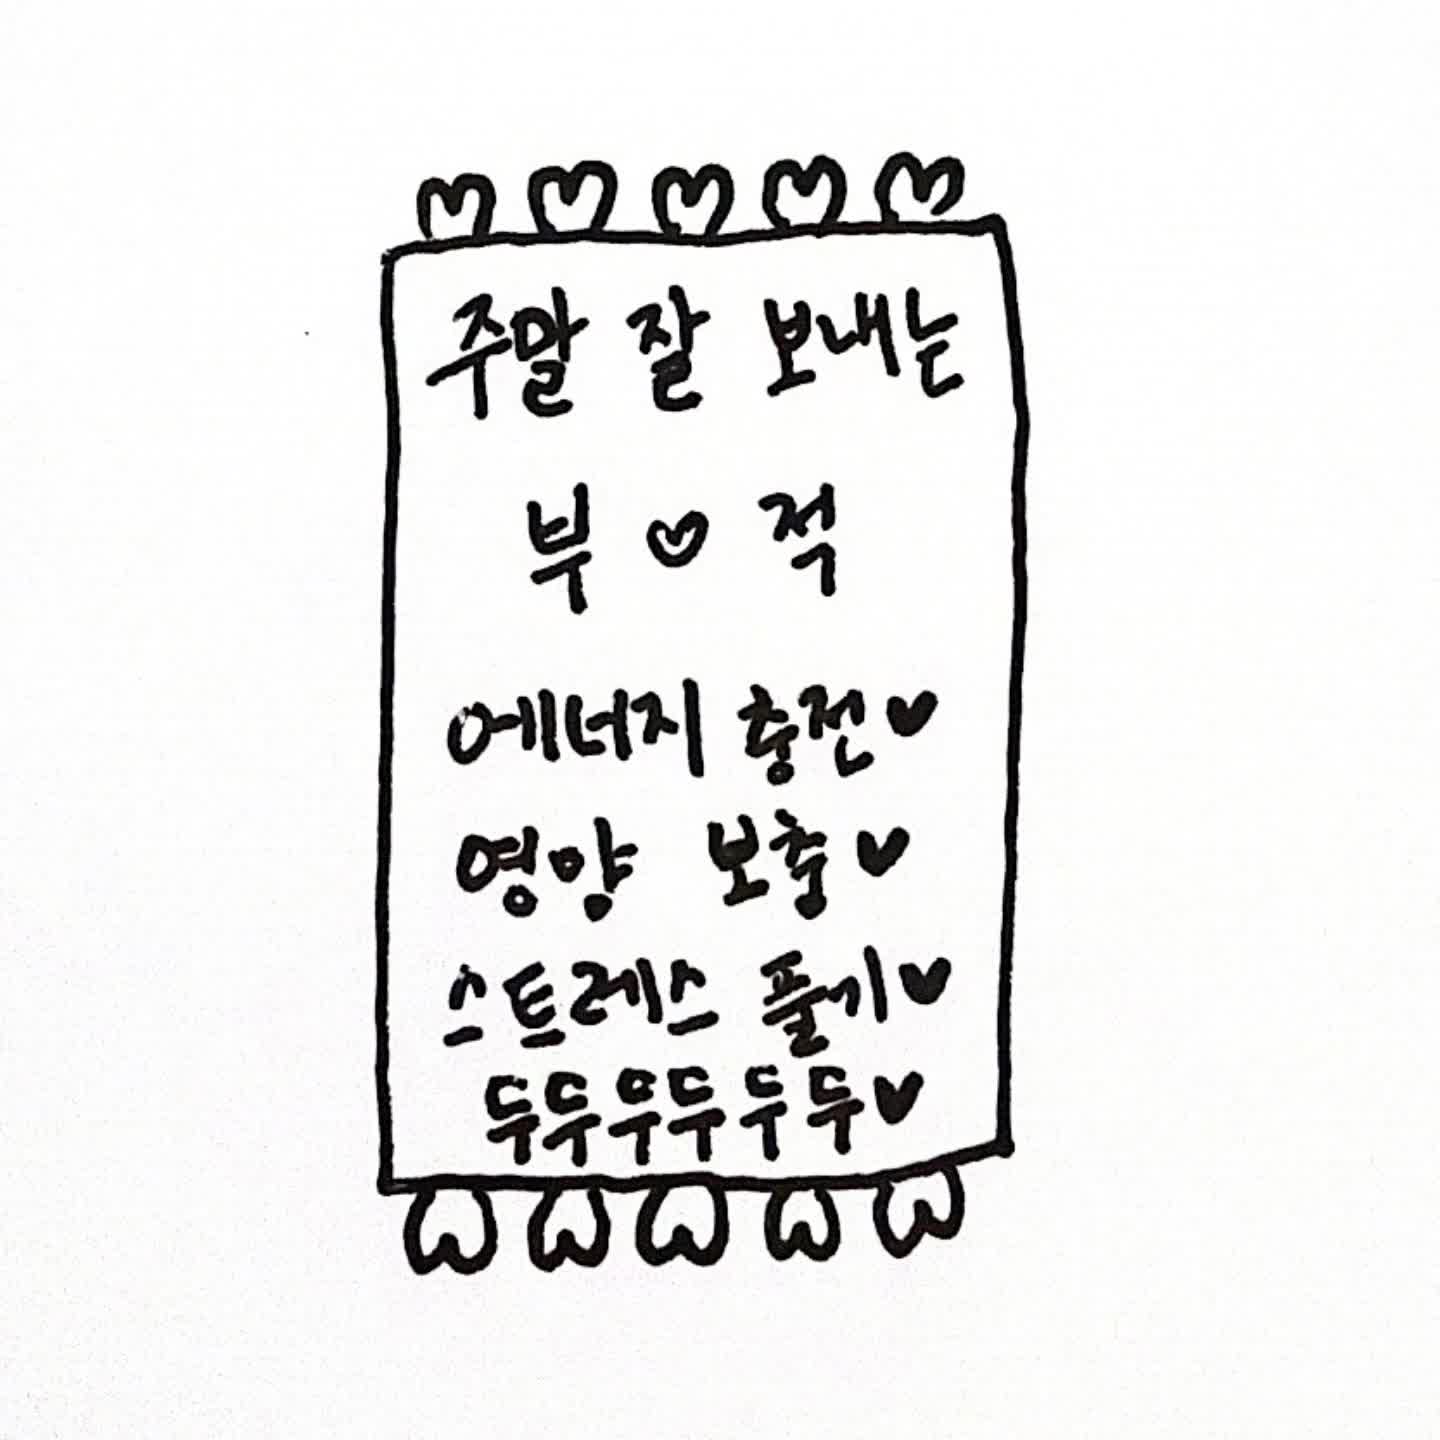 주말 잘 보내는
부♡적
에너지 충전♥
영양 보충♥
스트레스 풀기♥
두두우두두두♥